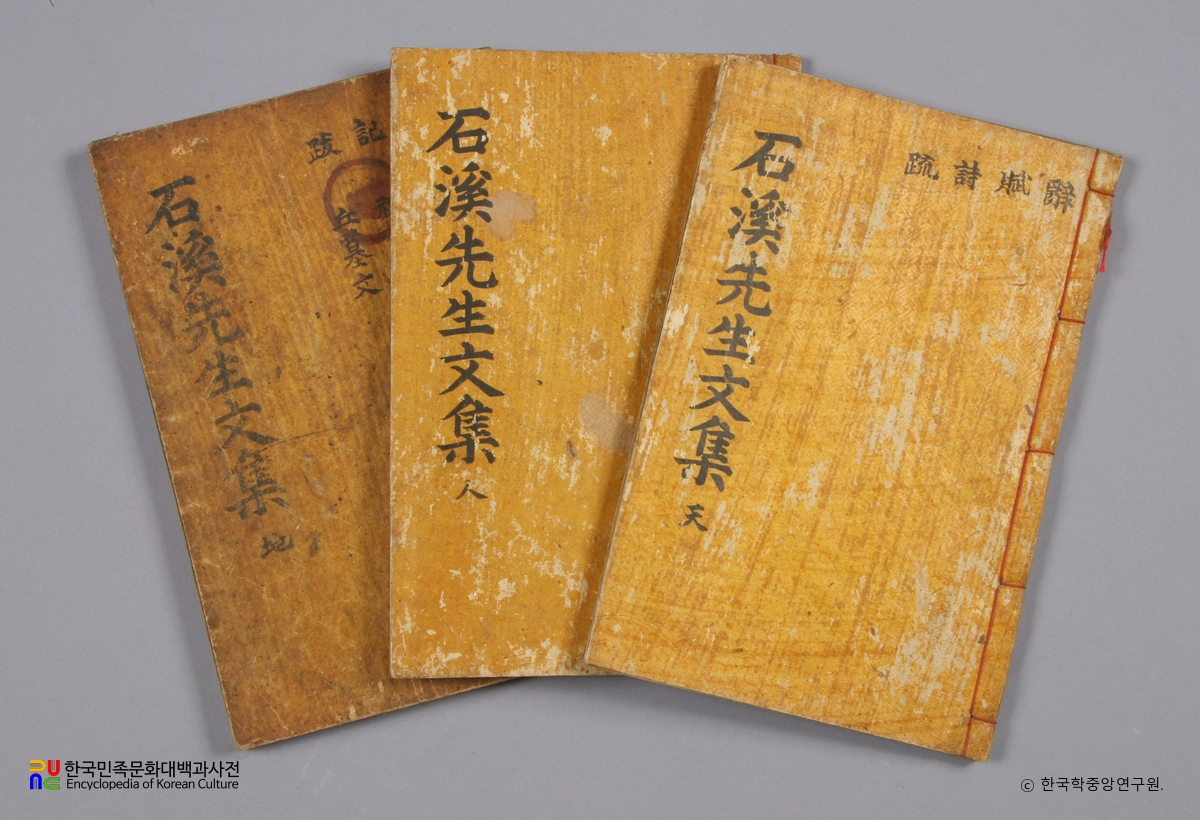 辭賦詩疏
石溪先生文集
天
石溪先生文集
人
記跋
墓文
石溪先生文集
地
한국민족문화대백과사전
Encyclopedia of Korean Culture
ⓒ 한국학중앙연구원.